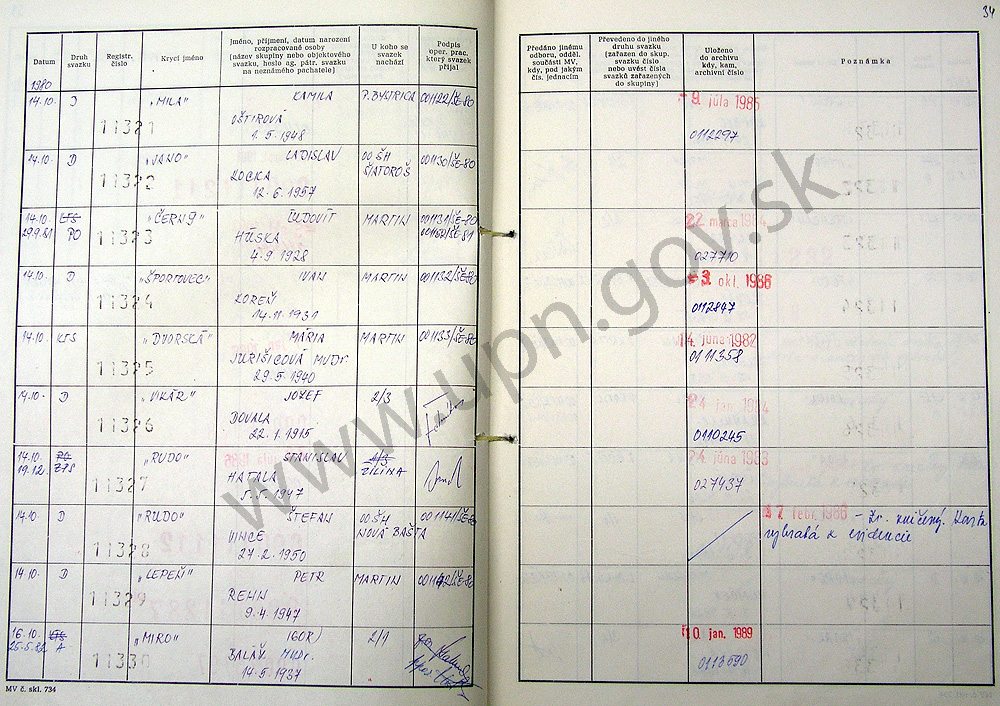 34
Datum
Druh svazku
Registr. číslo
Krycí jméno
Jméno, příjmení, datum narození
rozpracované osoby
(název skupiny nebo objektového
svazku, heslo ag. pátr. svazku
na neznámého pachatele)
U koho se
svazek
nachází
Podpis
oper. prac.
který svazek
přijal
Předáno jinému
odboru, odděl.
součásti MV,
kdy, pod jakým
čís. jednacím
Převedeno do jiného
druhu svazku
(zařazen do skup.
svazku číslo
nebo uvést čísla
svazků zařazených
do skupiny)
Uloženo
do archivu
kdy, kam,
archivní číslo
Poznámka
1980
14.10. D 11321 „MILA" KAMILA P. BYSTRICA 001122/ŠE-80 9. júla 1985
OŠTIROVÁ
1.5.1948 0112297
14.10. D 11322 „JANO" LADISLAV 00 ŠH 001130/ŠE-80
KOCKA ŠIATOROŠ
12.6.1957
14.10. 11323 „ČERNÝ" ĽUDOVÍT MARTIN 001131/ŠE-80 22 marca 1984
29.9.81 PO HÚSKA
4.9.1928 027710
14.10. D 11324 „ŠPORTOVEC" IVAN MARTIN 001132/ŠE-80 3. okt. 1986
KOREŇ
14.11.1931 0112847
14.10. KTS 11325 „DVORSKÁ" MÁRIA MARTIN 001133/ŠE-80 14. júna 1982
JURIŠICOVÁ MUDr.
29.5.1940 0111358
14.10. D 11326 „VIKÁR" JOZEF 2/3 24 jan. 1984
DOVALA
22.1.1915 0110245
14.10. 11327 „RUDO" STANISLAV 24. júna 1983
19.12. HATALA ŽILINA
5.5.1947 027437
14.10. D 11328 „RUDO" ŠTEFAN 00 ŠH 001141/ŠE-80 17 febr. 1986 - Zv. zničený. Karta
VINCE NOVÁ BAŠTA vybratá z evidencie
27.2.1950
14.10. D 11329 „LEPEŇ" PETR MARTIN 001142/ŠE-80
REHN
9.4.1947
16.10. 11330 „MIRO" IGOR 2/1 10 jan. 1989
A BALÁŽ MUDr.
14.5.1937 0113590
MV č. skl. 734
www.upn.gov.sk